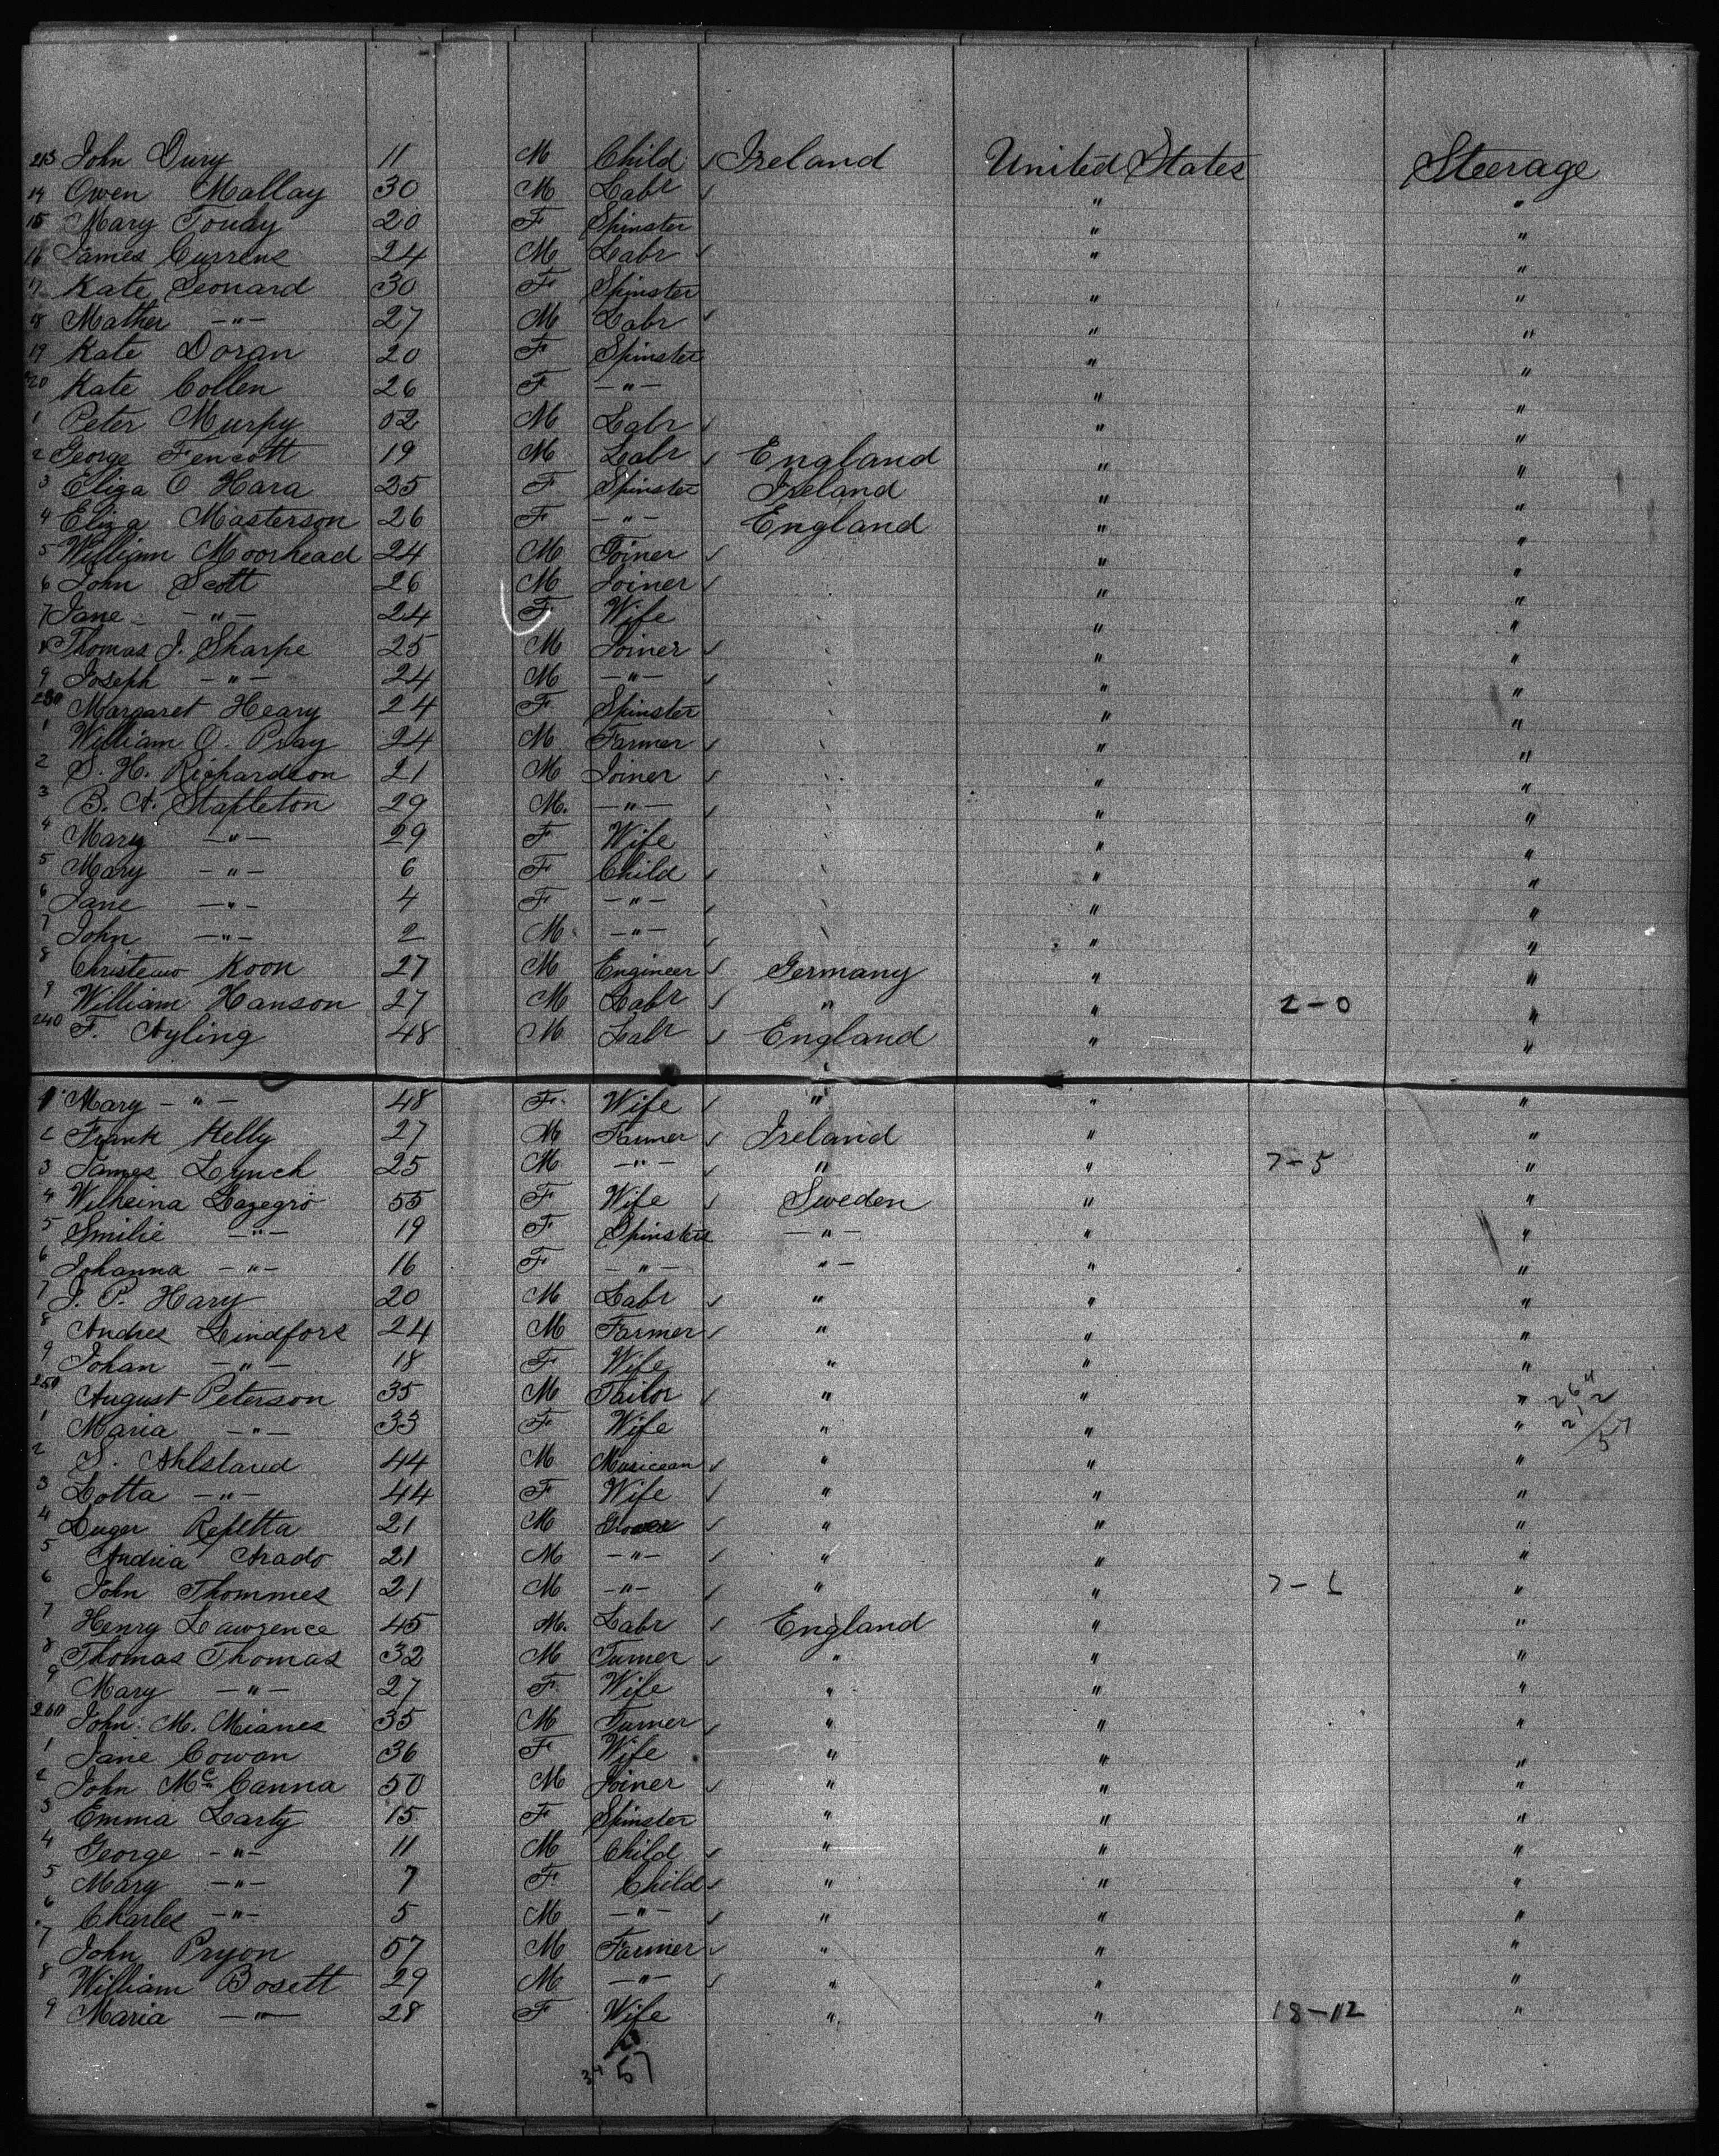 213 John Dury 11 M Child Ireland United States Steerage
14 Owen Mallay 30 M Labr " "
15 Mary Toudy 20 F Spinster " "
16 James Currens 24 M Labr " "
17 Kate Leonard 30 F Spinster " "
18 Mather -"- 27 M Labr " "
19 Kate Doran 20 F Spinster " "
20 Kate Collen 26 F -"- " "
1 Peter Murpy 52 M Labr " "
2 George Fencott 19 M Labr England " "
3 Eliza O Hara 25 F Spinster Ireland " "
4 Eliza Masterson 26 F -"- England " "
5 William Moorhead 24 M Joiner " "
6 John Scott 26 M Joiner " "
7 Jane -"- 24 F Wife " "
8 Thomas J. Sharpe 25 M Joiner " "
9 Joseph -"- 24 M -"- " "
230 Margaret Heary 24 F Spinster " "
1 William O. Pray 24 M Farmer " "
2 S. H. Richardson 21 M Joiner " "
3 B. A. Stapleton 29 M. -"- " "
4 Mary -"- 29 F Wife " "
5 Mary -"- 6 F Child " "
6 Jane -"- 4 F -"- " "
7 John -"- 2 M -"- " "
8 Koon 27 M Engineer Germany " "
9 William Hanson 27 M Labr " " 2-0 "
240 F. Ayling 48 M Labr England " "
1 Mary -"- 48 F. Wife " " "
2 Frank Kelly 27 M Farmer Ireland " "
3 James Lynch 25 M -"- " " 7-5 "
4 55 F Wife Sweden " "
5 Emilie -"- 19 F Spinster -"- " "
6 Johanna -"- 16 F -"- "- " "
7 J. P. Hary 20 M Labr " " "
8 Andres Lindfors 24 M Farmer " " "
9 Johan -"- 18 F Wife " " "
250 August Peterson 35 M Tailor " " "
1 Maria -"- 33 F Wife " " "
2 S. Ahlslaud 44 M Musicean " " "
3 Lotta -"- 44 F Wife " " "
4 21 M " " "
5 Andria Arado 21 M -"- " " "
6 John Thommes 21 M -"- " " "
7 Henry Lawrence 45 M. Labr England " "
8 Thomas Thomas 32 M Turner " " "
9 Mary -"- 27 F. Wife " " "
260 John M. Mianes 35 M Turner " " "
1 Jane Cowan 36 F Wife " " "
2 John Mc Canna 50 M Joiner " " "
3 Emma Larty 15 F Spinster " " "
4 George -"- 11 M Child " " "
5 Mary -"- 7 F Child " " "
6 Charles -"- 5 M -"- " " "
7 John Pryon 57 M Farmer " " "
8 William Bosett 29 M -"- " " "
9 Maria -"- 28 F Wife " " 18-12 "
34 57